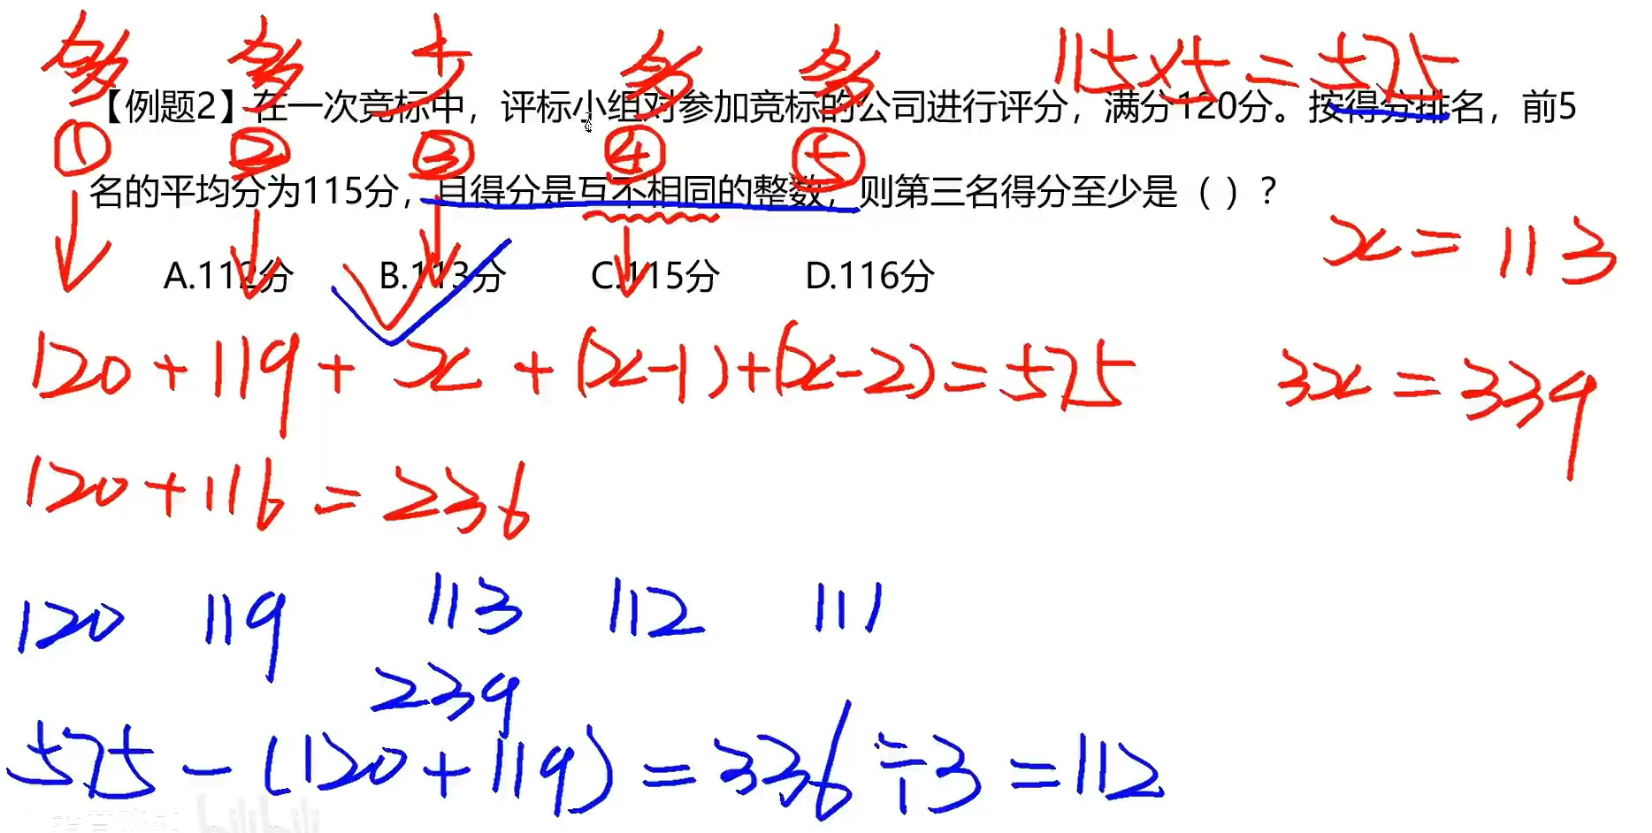 多 多 少 多 多 115×5=575
【例题2】在一次竞标中，评标小组对参加竞标的公司进行评分，满分120分。按得分排名，前5
① ② ③ ④ ⑤
名的平均分为115分，且得分是互不相同的整数，则第三名得分至少是（ ）？
x=113
A.112分 B.113分 C.115分 D.116分
120+119+x+(x-1)+(x-2)=575 3x=339
120+116=236
120 119 113 112 111
239
575-(120+119)=336÷3=112